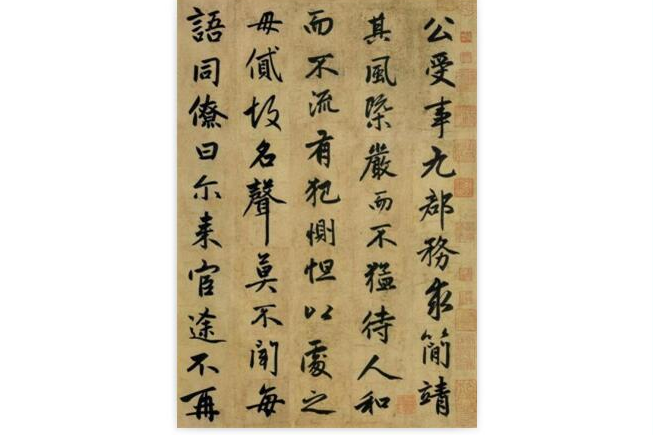 公受事九郡務求簡靖
其風槩嚴而不猛待人和
而不流有犯惻怛以處之
毋貸故名聲莫不聞每
語同僚曰尔来宦途不再